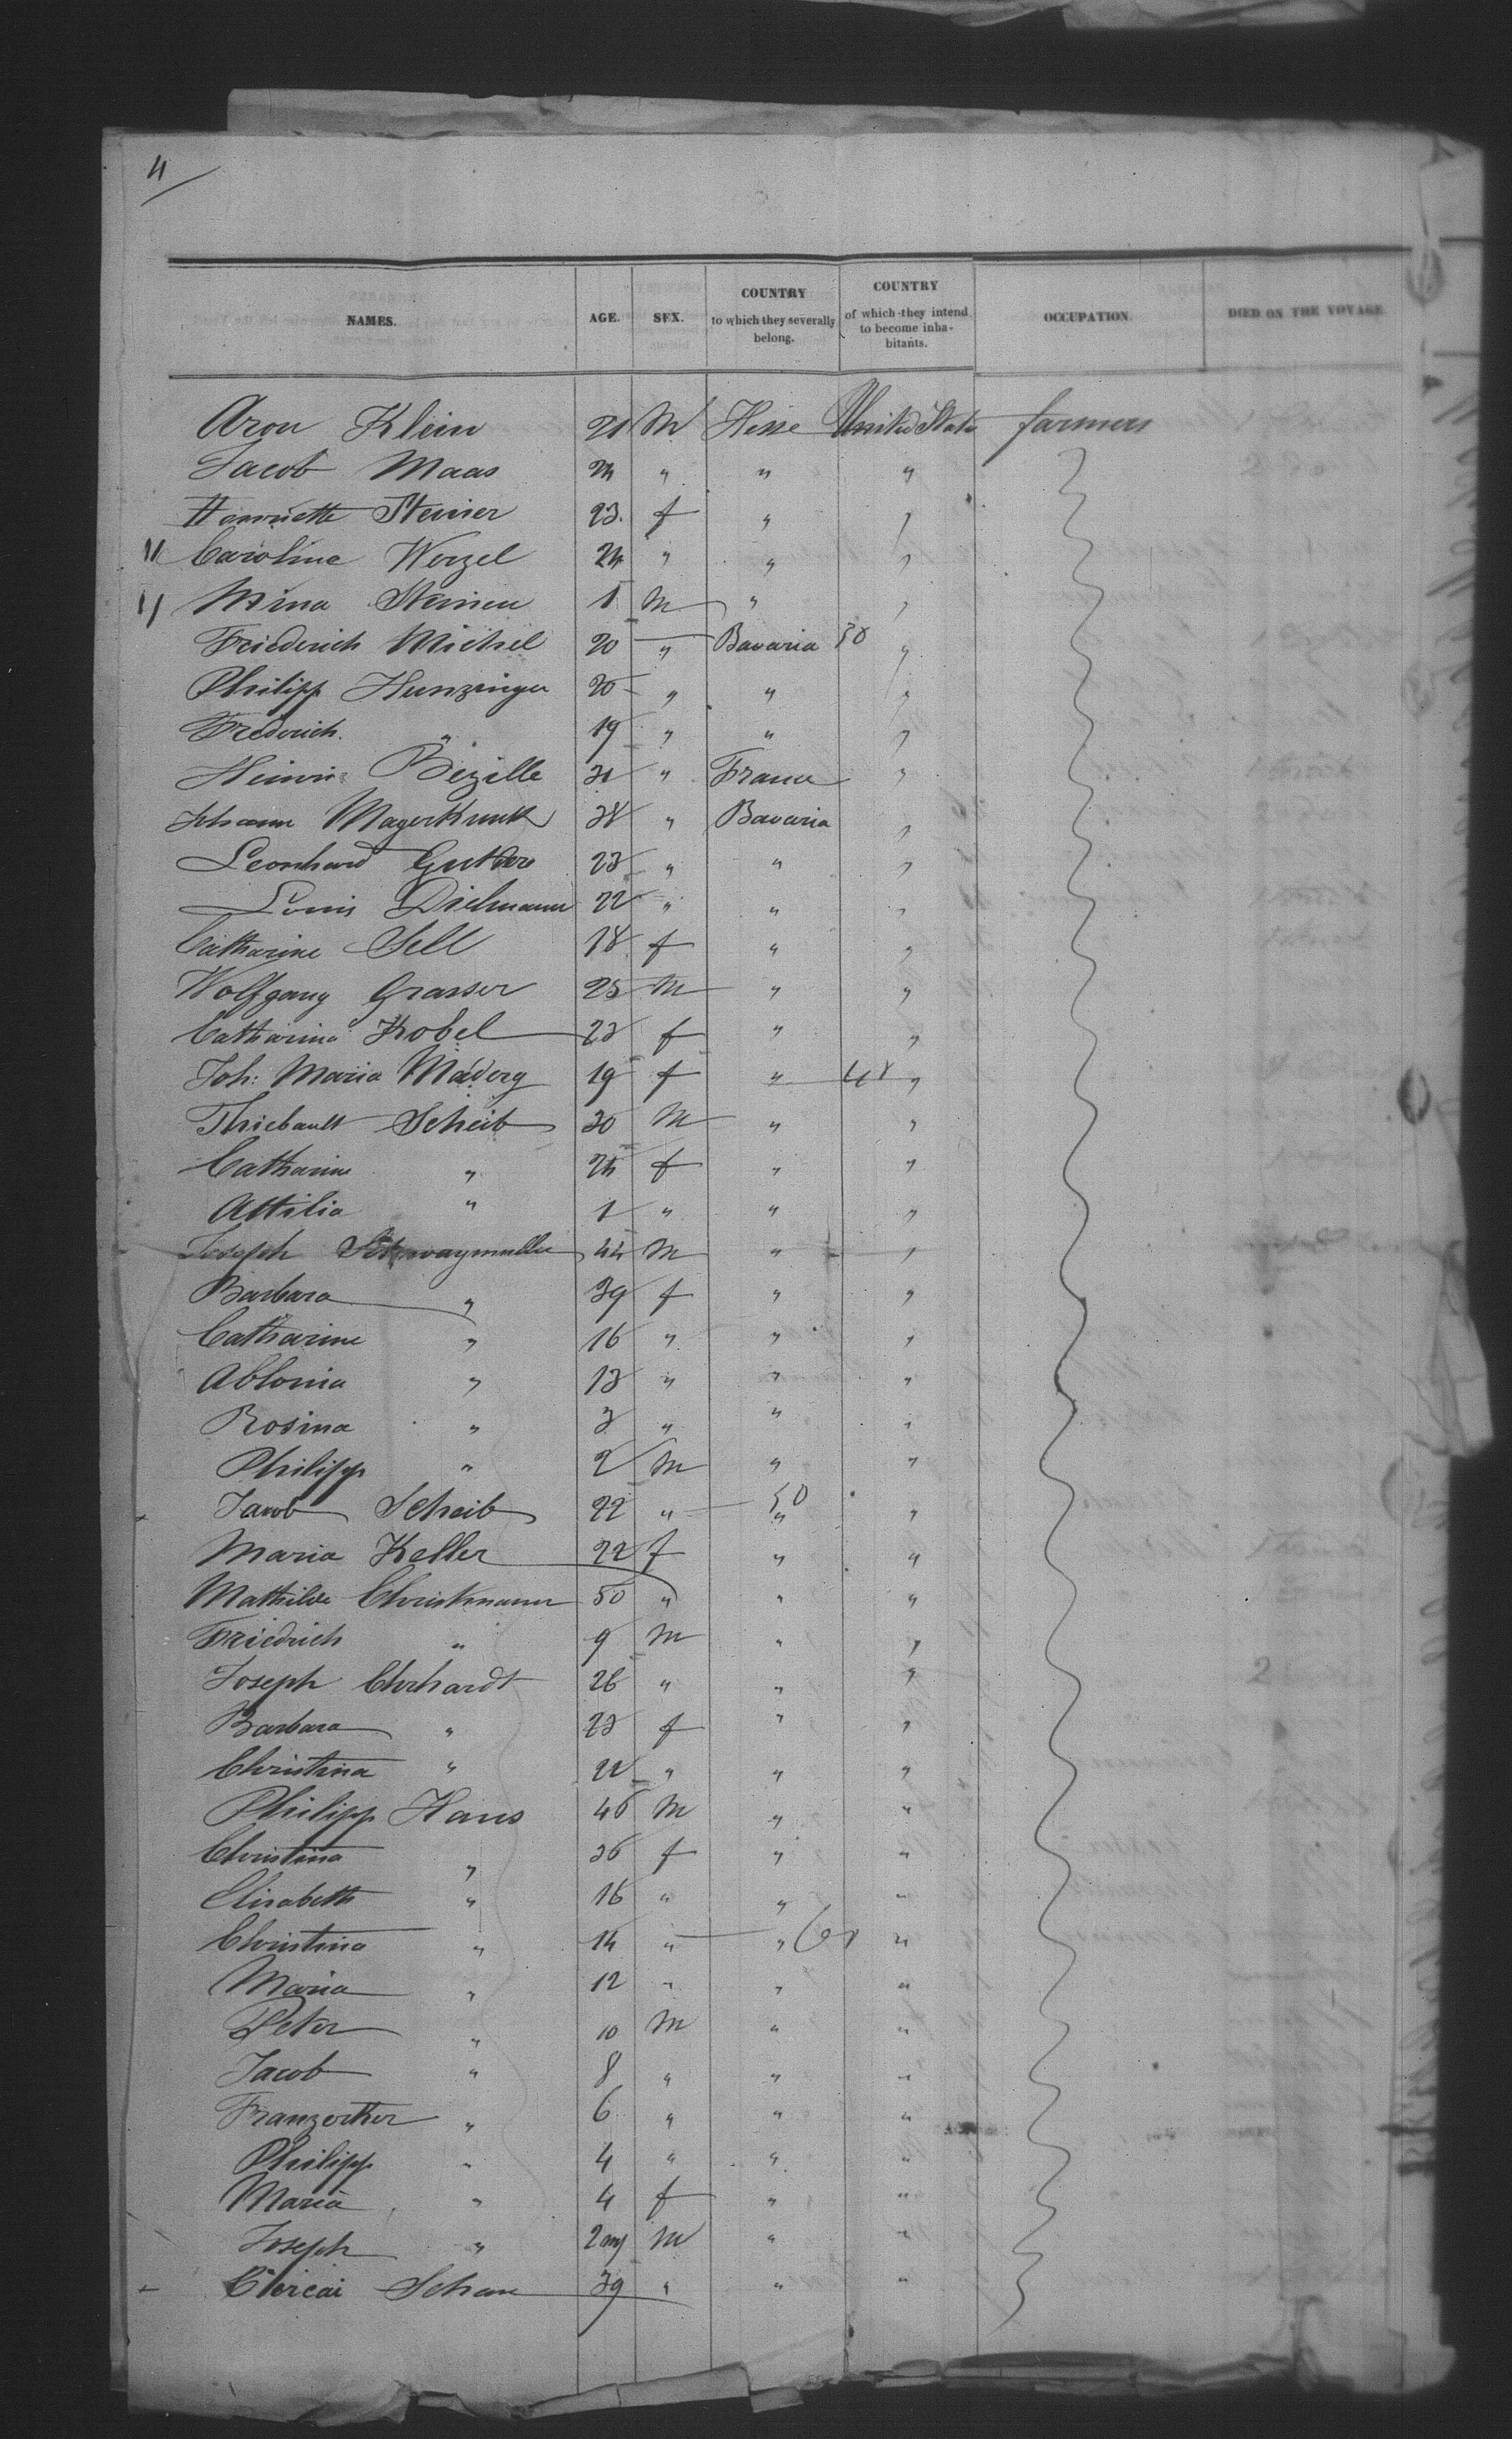 4
NAMES. AGE. SEX. COUNTRY to which they severally belong. COUNTRY of which they intend to become inhabitants. OCCUPATION. DIED ON THE VOYAGE.
Aron Klein 21 M Hesse United State farmers
Jacob Maas 24 " " "
Henriette Steiner 23. f " "
" Caroline Werzel 24 " " "
" Mina Steinen 1 M " "
Friederich Michel 20 " Bavaria 38 "
Philipp Hunzinger 20 " " "
Frederich " 19 " " "
Bezille 31 " France "
Johann 38 " Bavaria "
Leonhard 23 " " "
Louis Dielmann 22 " " "
Catharine Sell 18 f " "
Wolfgang Grasser 25 M " "
Catharina Kobel 23 f " "
Joh: Maria 19 f " 48 "
Thiebault Scheib 30 M " "
Catharine " 24 f " "
Attilia " 1 " " "
Joseph 44 M " "
Barbara " 39 f " "
Catharine " 16 " " "
Ablonia " 13 " " "
Rosina " 3 " " "
Philipp " 2 M " "
Jacob Scheib 22 " 50 " "
Maria Keller 22 f " "
Mathilde Christmann 50 " " "
Friedrich " 9 M " "
Joseph Ehrhardt 26 " " "
Barbara " 23 f " "
Christina " 22 " " "
Philipp Haus 46 M " "
Christina " 36 f " "
Elisabeth " 16 " " "
Christina " 14 " " "
Maria " 12 " " "
Peter " 10 M " "
Jacob " 8 " " "
" 6 " " "
Philipp " 4 " " "
Maria " 4 f " "
Joseph " 2 M " "
Schau 39 " " "